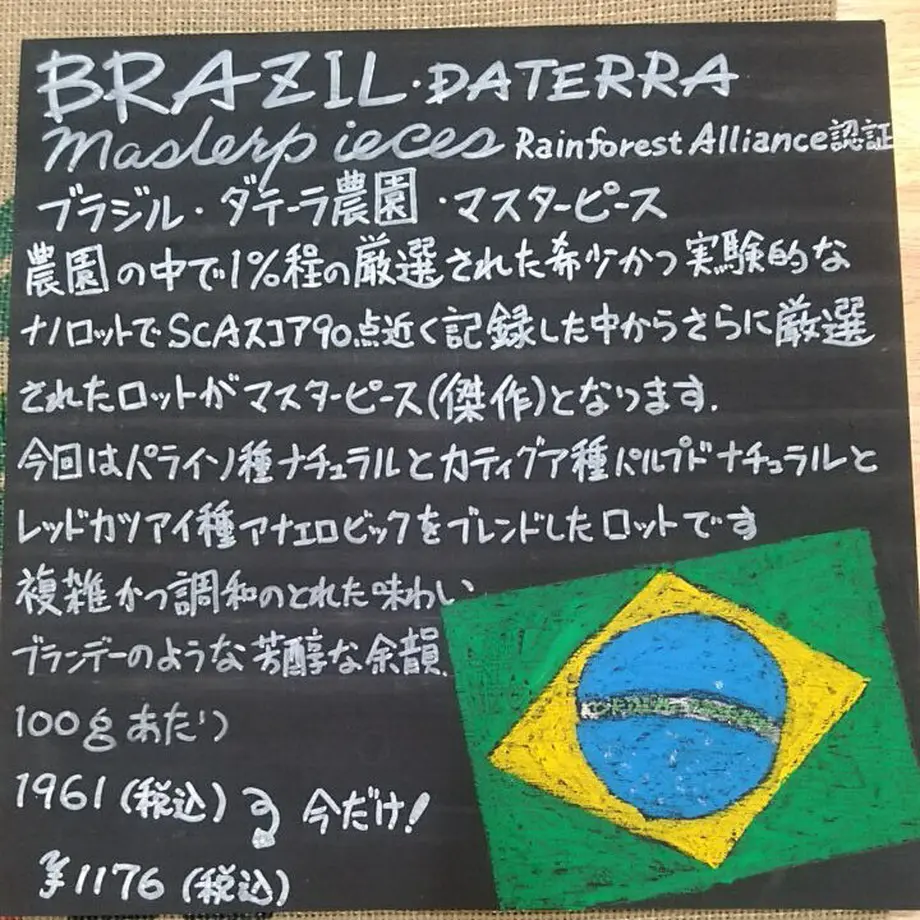 BRAZIL・DATERRA
Masterpieces Rainforest Alliance認証
ブラジル・ダテーラ農園・マスターピース
農園の中で1%程の厳選された希少かつ実験的な
ナノロットでSCAスコア90点近く記録した中からさらに厳選
されたロットがマスターピース(傑作)となります.
今回はパライソ種ナチュラルとカティグア種パルプドナチュラルと
レッドカツアイ種アナエロビックをブレンドしたロットです
複雑かつ調和のとれた味わい
ブランデーのような芳醇な余韻.
100gあたり
1961(税込) 今だけ!
¥1176(税込)